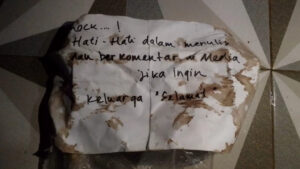 Lock....!
Hati-Hati dalam menulis
dan berkomentar di Media
Jika Ingin
Keluarga "Selamat"